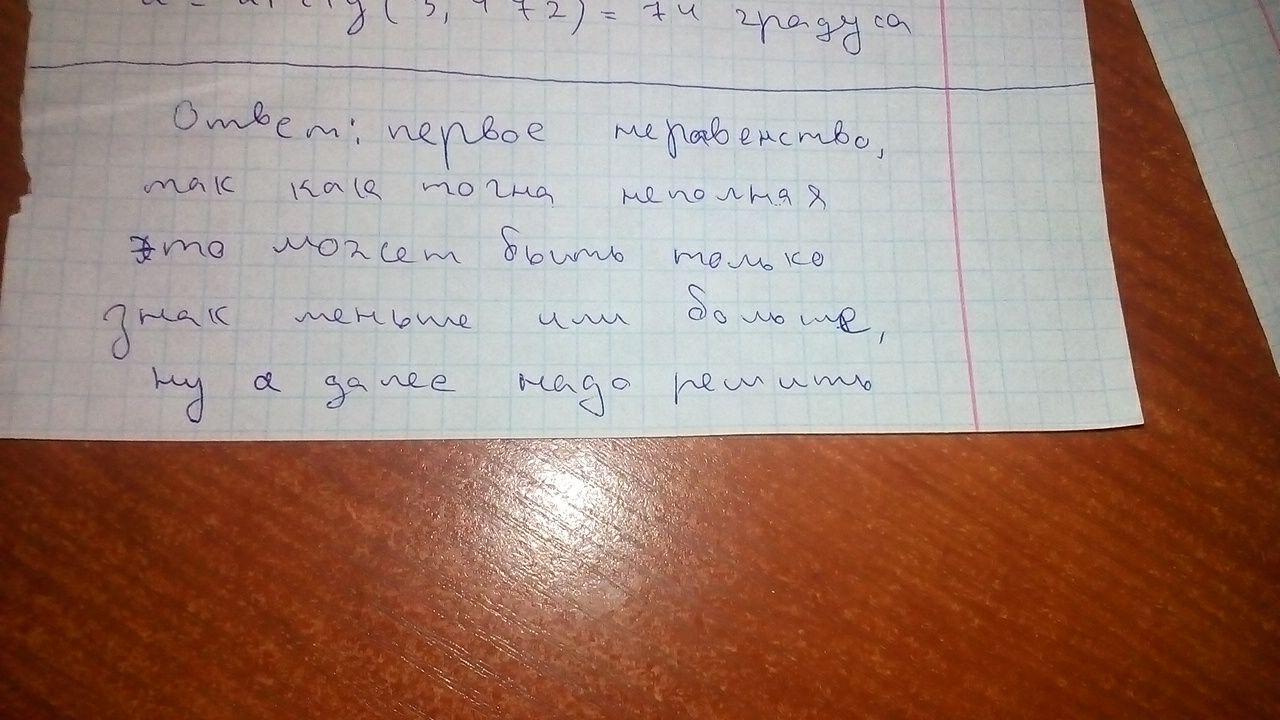 (3,472) = 74 градуса
Ответ: первое неравенство,
так как точна неполная
это может быть только
знак меньше или больше,
ну а далее надо решить